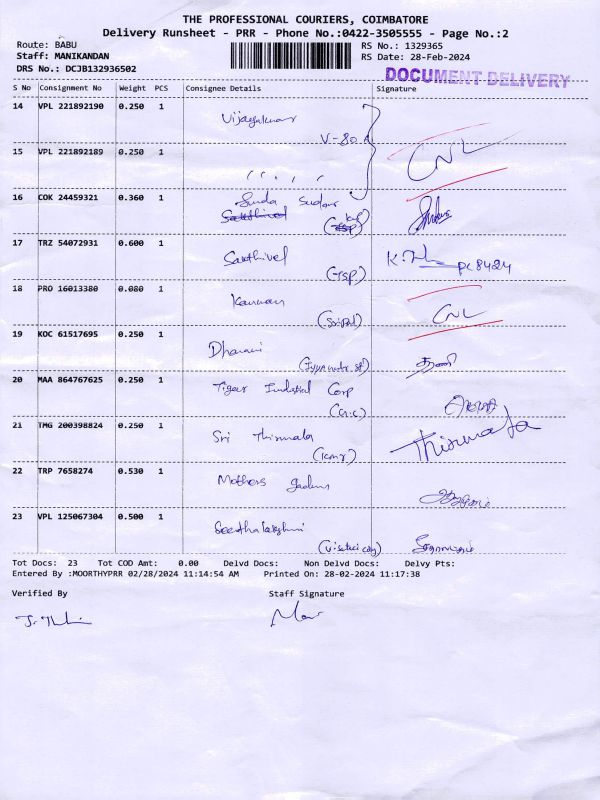 THE PROFESSIONAL COURIERS, COIMBATORE
Delivery Runsheet - PRR - Phone No.:0422-3505555 - Page No.:2
Route: BABU
RS No.: 1329365
Staff: MANIKANDAN
RS Date: 28-Feb-2024
DRS No.: DCJB132936502
DOCUMENT DELIVERY
S No Consignment No Weight PCS Consignee Details Signature
14 VPL 221892190 0.250 1 Vijayakumar
V-80
15 VPL 221892189 0.250 1 CNL
16 COK 24459321 0.360 1
Sakthivel
17 TRZ 54072931 0.600 1 Sakthivel (TSP) PC8424
18 PRO 16013380 0.080 1 Kannan CNL
19 KOC 61517695 0.250 1 Dharani தரணி
20 MAA 864767625 0.250 1 Tiger Industrial Corp
21 TMG 200398824 0.250 1 Sri Thirumala Thirumala
22 TRP 7658274 0.530 1 Mothers
23 VPL 125067304 0.500 1 Seethalakshmi
Tot Docs: 23 Tot COD Amt: 0.00 Delvd Docs: Non Delvd Docs: Delvy Pts:
Entered By :MOORTHYPRR 02/28/2024 11:14:54 AM Printed On: 28-02-2024 11:17:38
Verified By Staff Signature